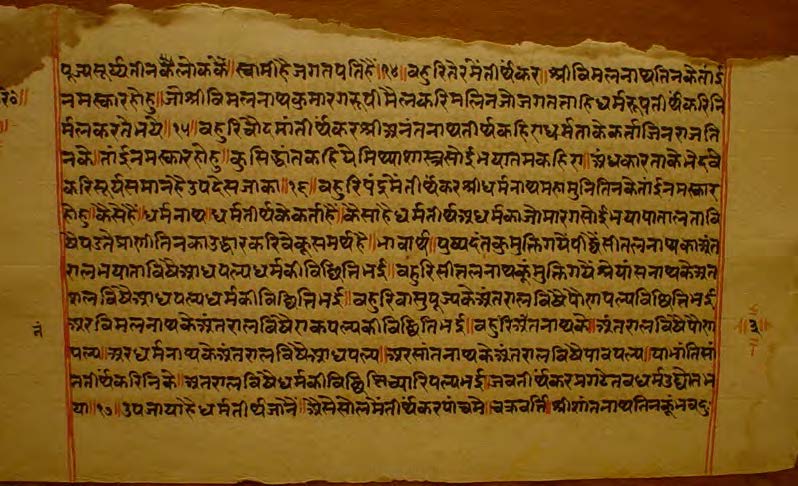 पूज्यसूर्यतीनकैलोककै॥स्वामीहैजगतपतिहैं॥१४॥बहुरितेरमैंतीर्थंकर॥श्रीविमलनाथतिनकेतांई
नमस्कारहोहु॥जोश्रीविमलनाथकुमारगरूपीमैलकरिमलिनजोजगतताहिधर्मरूपतीर्थकरिनि
र्मलकरतेभये॥१५॥बहुरिचौदमांतीर्थंकरश्रीअनंतनाथतीर्थकहिएधर्मताकेकर्ताजिनराजति
नके॥तांईनमस्कारहोहु॥कुसिद्धांतकहियेमिथ्याशास्त्रसोईभयातमकहिए॥अंधकारताकेभेदवे
करिसूर्यसमानहैउपदेसजाका॥१६॥बहुरिपंद्रमैंतीर्थंकरश्रीधर्मनाथमहामुनितिनकेतांईनमस्कार
होहु॥कैसेहैं॥धर्मनाथ॥धर्मतीर्थकेकर्ताहैं॥कैसाहैधर्मतीर्थअधर्मकाजोमारगसोईभयापातालतावि
षैपडतेप्राणीतिनकाउद्धारकरिवेकूसमर्थहै॥भावार्थ॥पुष्पदंतकुमुक्तिगयेपीछैसीतलनाथकाअंत
रालभयाताविषैआधपल्यधर्मकीविछित्तिभई॥बहुरिसीतलनाथकूंमुक्तिगयेश्रेयांसनाथकेअंत
रालविषैआधपल्यधर्मकीविछित्तिभई॥बहुरिवासपूज्यकेअंतरालविषैपौणपल्यविछित्तिभई
अरविमलनाथकेअंतरालविषैएकपल्यकीविछित्तिभई॥बहुरिअनंतनाथके॥अंतरालविषैपौण
पल्य॥अरधर्मनाथकेअंतरालविषैआधपल्य॥अरसांतनाथकेअंतरालविषैपावपल्य॥याभांतिसां
ततीर्थंकरनिके॥अंतरालविषैधर्मकीविछित्तिच्यारिपल्यभई॥जबतीर्थंकरप्रगटेतबधर्मउद्योतभ
या॥१७॥उपजायाहैधर्मतीर्थजोनैं॥ऐसेसोलमेंतीर्थंकरपांचमे॥चक्रवर्त्ति॥श्रीशांतनाथतिनकूंभवदु
नं
३